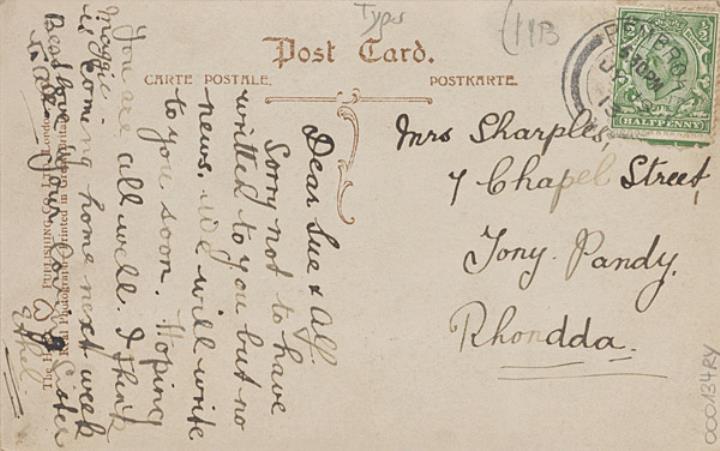 Types
(11B
Post Card.
CARTE POSTALE.
POSTKARTE.
PEMBRO
4.30PM
13
HALFPENNY
Mrs Sharples,
7 Chapel Street,
Tony. Pandy.
Rhondda.
Dear Sue & Alf.
Sorry not to have
written to you but no
news. We will write
to you soon. Hoping
you are all well. I think
Maggie
is coming home next week
Best love your Sister
Ethel.
PUBLISHING
Real Photograph Printed in Great Britain
000134RY